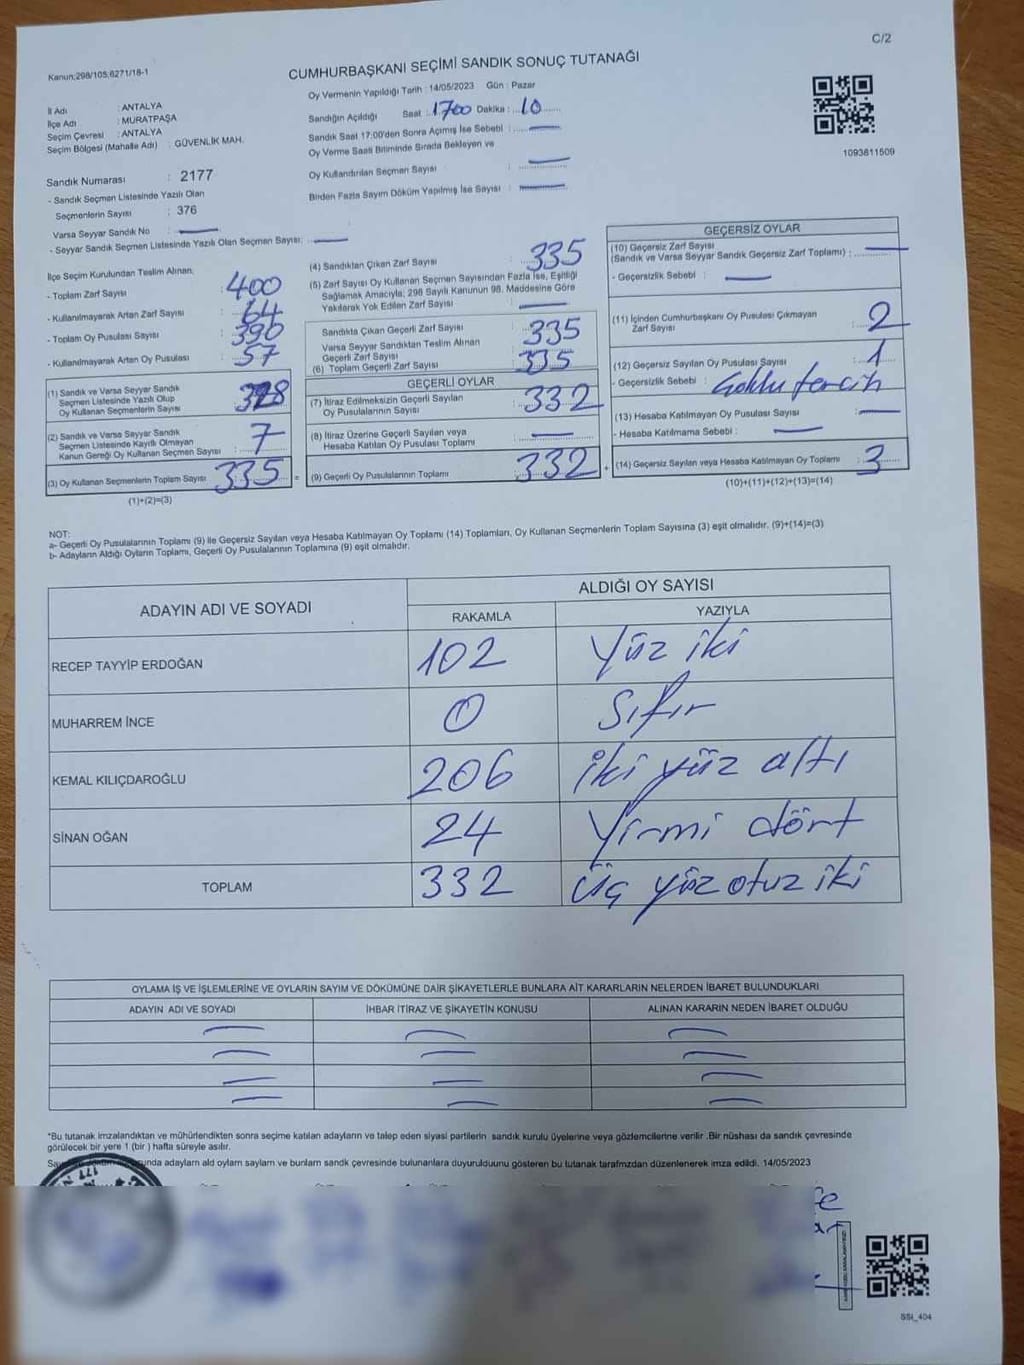 C/2
Kanun:298/105;6271/18-1
CUMHURBAŞKANI SEÇİMİ SANDIK SONUÇ TUTANAĞI
İl Adı : ANTALYA
İlçe Adı : MURATPAŞA
Seçim Çevresi : ANTALYA
Seçim Bölgesi (Mahalle Adı) : GÜVENLİK MAH.
Oy Vermenin Yapıldığı Tarih : 14/05/2023 Gün : Pazar
Sandığın Açıldığı Saat : 1700 Dakika : 10
Sandık Saat 17:00'den Sonra Açımış İse Sebebi :
Oy Verme Saati Bitiminde Sırada Bekleyen ve
Oy Kullandırılan Seçmen Sayısı :
Birden Fazla Sayım Döküm Yapılmış İse Sayısı :
1093811509
Sandık Numarası : 2177
- Sandık Seçmen Listesinde Yazılı Olan
Seçmenlerin Sayısı : 376
Varsa Seyyar Sandık No :
- Seyyar Sandık Seçmen Listesinde Yazılı Olan Seçmen Sayısı:
İlçe Seçim Kurulundan Teslim Alınan;
- Toplam Zarf Sayısı : 400
- Kullanılmayarak Artan Zarf Sayısı : 64
- Toplam Oy Pusulası Sayısı : 390
- Kullanılmayarak Artan Oy Pusulası : 57
(1) Sandık ve Varsa Seyyar Sandık
Seçmen Listesinde Yazılı Olup
Oy Kullanan Seçmenlerin Sayısı : 328
(2) Sandık ve Varsa Seyyar Sandık
Seçmen Listesinde Kayıtlı Olmayan
Kanun Gereği Oy Kullanan Seçmen Sayısı : 7
(3) Oy Kullanan Seçmenlerin Toplam Sayısı : 335
(1)+(2)=(3)
(4) Sandıktan Çıkan Zarf Sayısı : 335
(5) Zarf Sayısı Oy Kullanan Seçmen Sayısından Fazla İse, Eşitliği
Sağlamak Amacıyla; 298 Sayılı Kanunun 98. Maddesine Göre
Yakılarak Yok Edilen Zarf Sayısı :
Sandıkta Çıkan Geçerli Zarf Sayısı : 335
Varsa Seyyar Sandıktan Teslim Alınan
Geçerli Zarf Sayısı :
(6) Toplam Geçerli Zarf Sayısı : 335
GEÇERLİ OYLAR
(7) İtiraz Edilmeksizin Geçerli Sayılan
Oy Pusulalarının Sayısı : 332
(8) İtiraz Üzerine Geçerli Sayılan veya
Hesaba Katılan Oy Pusulası Toplamı :
(9) Geçerli Oy Pusulalarının Toplamı : 332
GEÇERSİZ OYLAR
(10) Geçersiz Zarf Sayısı
(Sandık ve Varsa Seyyar Sandık Geçersiz Zarf Toplamı) :
- Geçersizlik Sebebi :
(11) İçinden Cumhurbaşkanı Oy Pusulası Çıkmayan
Zarf Sayısı : 2
(12) Geçersiz Sayılan Oy Pusulası Sayısı : 1
- Geçersizlik Sebebi : Çoklu tercih
(13) Hesaba Katılmayan Oy Pusulası Sayısı :
- Hesaba Katılmama Sebebi :
(14) Geçersiz Sayılan veya Hesaba Katılmayan Oy Toplamı : 3
(10)+(11)+(12)+(13)=(14)
NOT:
a- Geçerli Oy Pusulalarının Toplamı (9) ile Geçersiz Sayılan veya Hesaba Katılmayan Oy Toplamı (14) Toplamları, Oy Kullanan Seçmenlerin Toplam Sayısına (3) eşit olmalıdır. (9)+(14)=(3)
b- Adayların Aldığı Oyların Toplamı, Geçerli Oy Pusulalarının Toplamına (9) eşit olmalıdır.
ADAYIN ADI VE SOYADI
ALDIĞI OY SAYISI
RAKAMLA YAZIYLA
RECEP TAYYİP ERDOĞAN 102 Yüz iki
MUHARREM İNCE 0 Sıfır
KEMAL KILIÇDAROĞLU 206 iki yüz altı
SİNAN OĞAN 24 Yirmi dört
TOPLAM 332 Üç yüz otuz iki
OYLAMA İŞ VE İŞLEMLERİNE VE OYLARIN SAYIM VE DÖKÜMÜNE DAİR ŞİKAYETLERLE BUNLARA AİT KARARLARIN NELERDEN İBARET BULUNDUKLARI
ADAYIN ADI VE SOYADI İHBAR İTİRAZ VE ŞİKAYETİN KONUSU ALINAN KARARIN NEDEN İBARET OLDUĞU
*Bu tutanak imzalandıktan ve mühürlendikten sonra seçime katılan adayların ve talep eden siyasi partilerin sandık kurulu üyelerine veya gözlemcilerine verilir .Bir nüshası da sandık çevresinde
görülecek bir yere 1 (bir ) hafta süreyle asılır.
adayların ald oylarn saylarn ve bunlarn sandk çevresinde bulunanlara duyurulduunu gösteren bu tutanak tarafmzdan düzenlenerek imza edildi. 14/05/2023
177
SSI_404